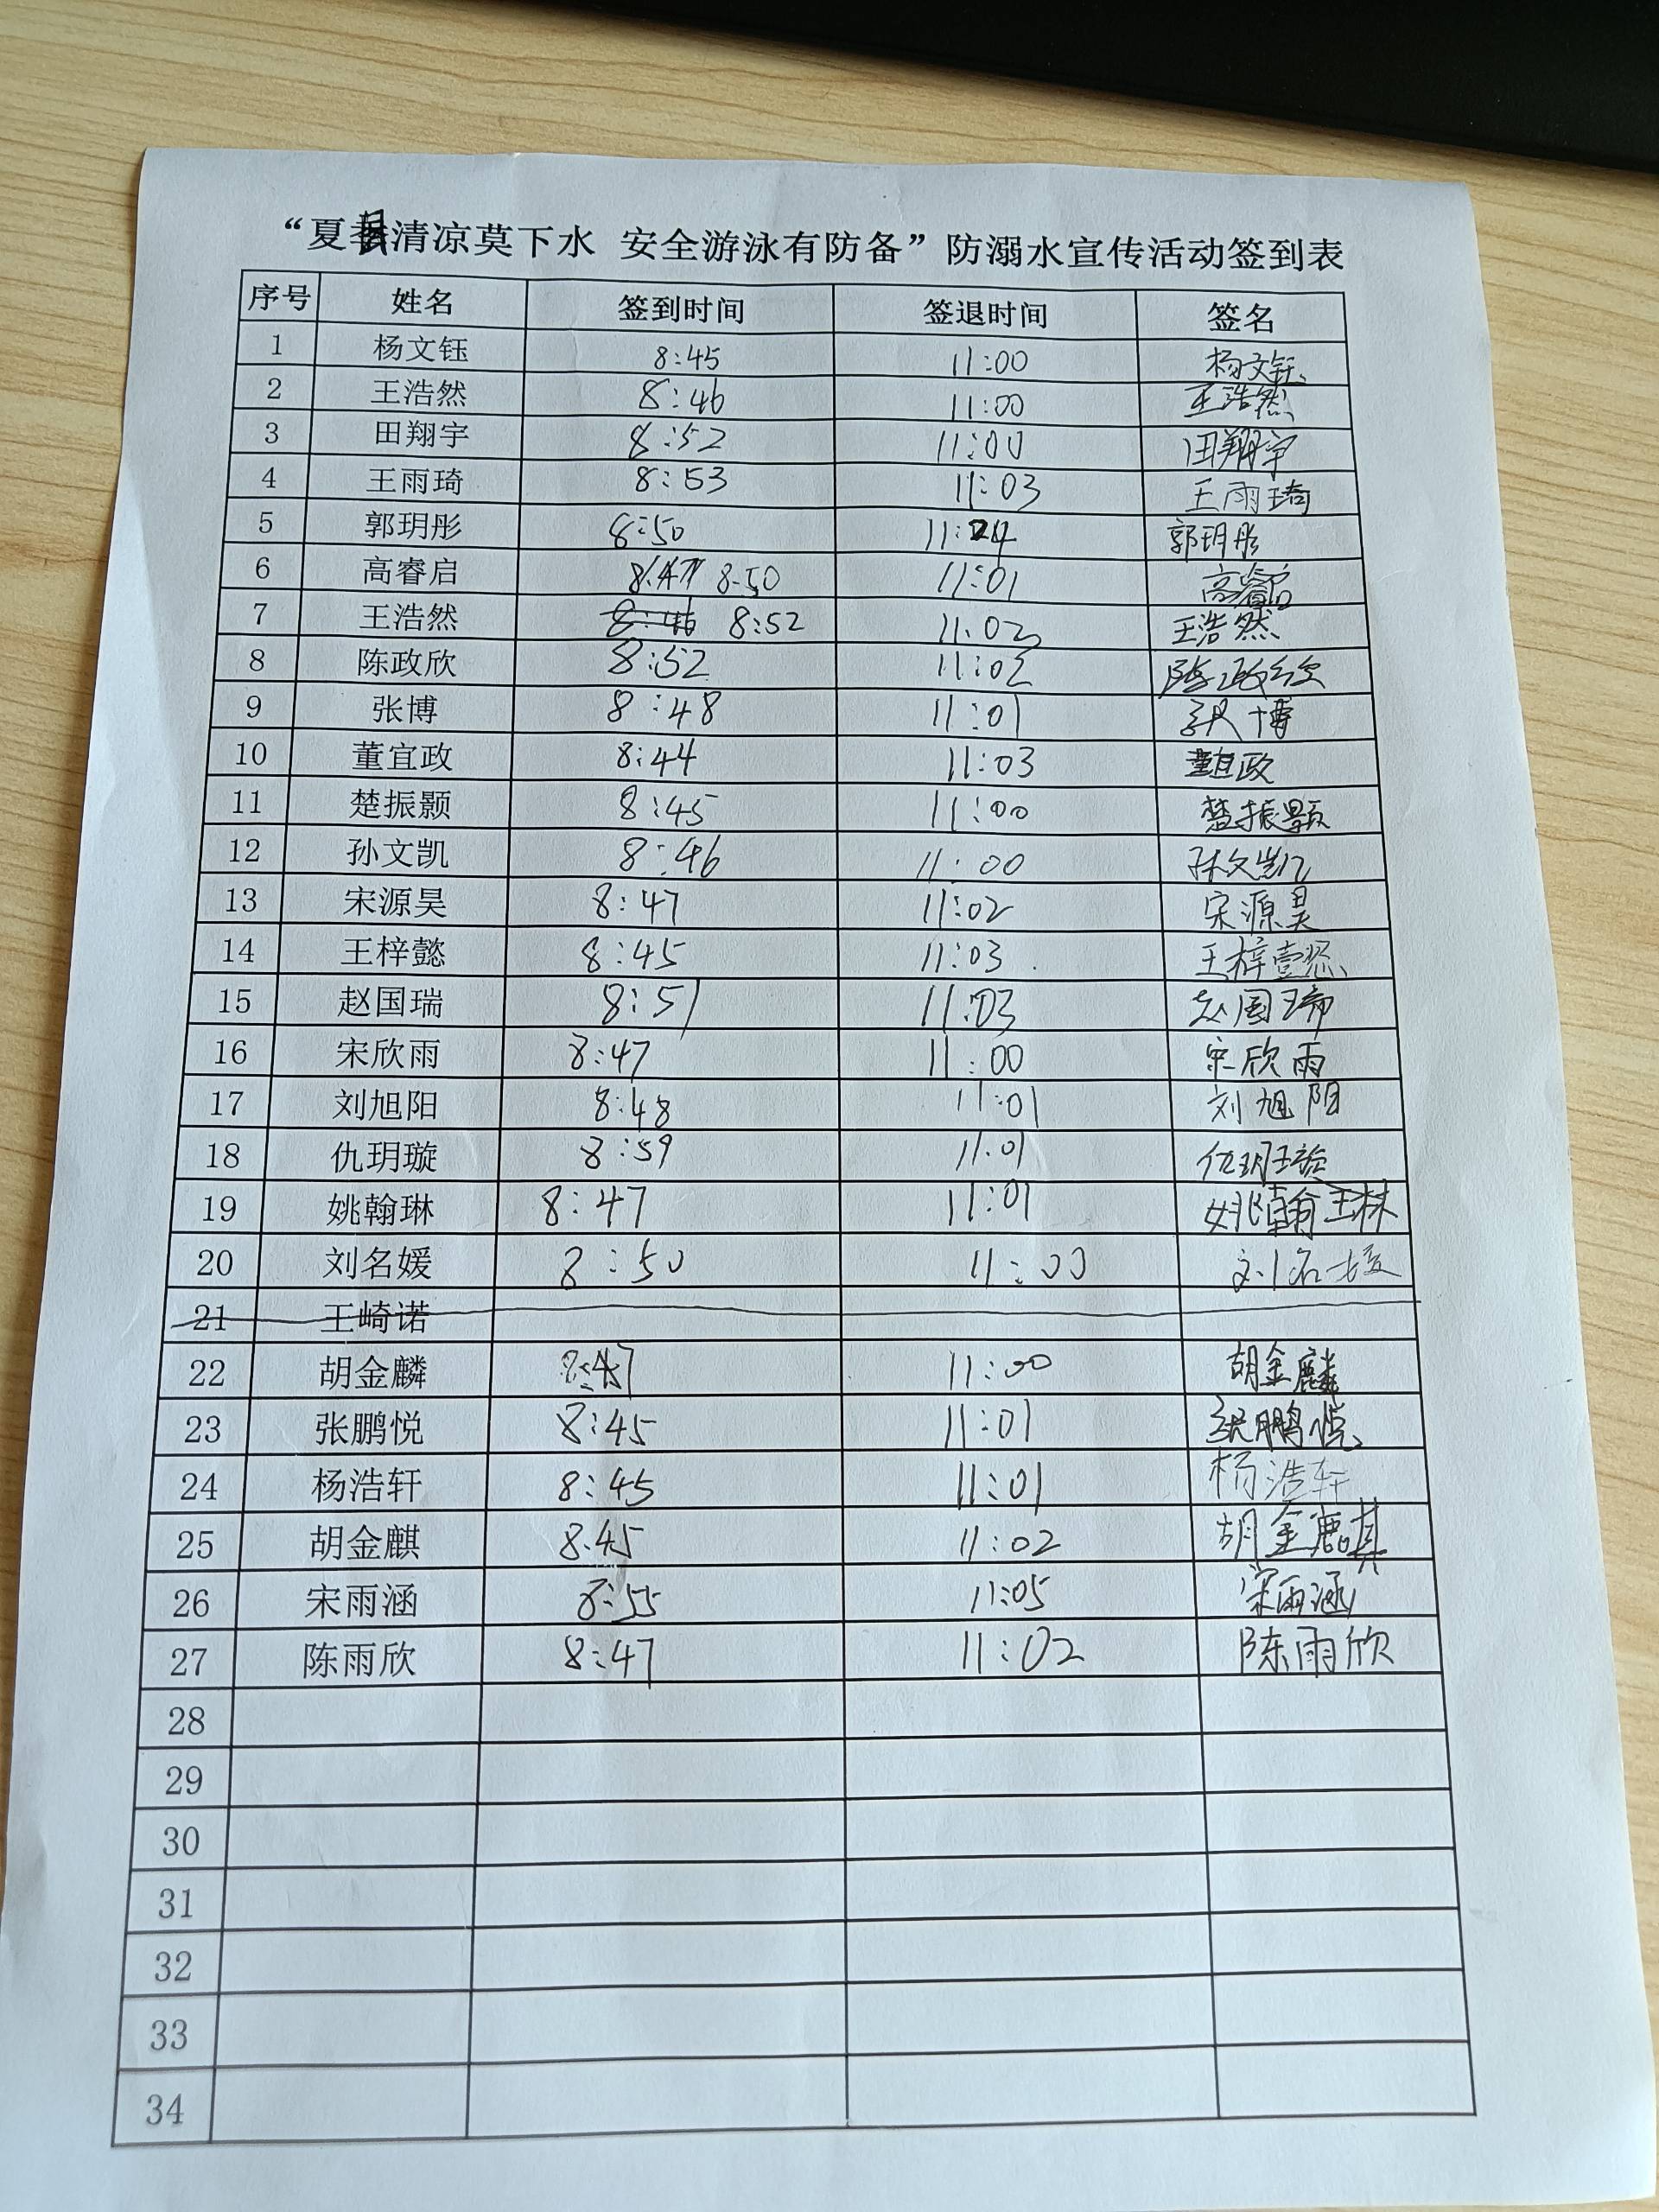 “夏县清凉莫下水 安全游泳有防备”防溺水宣传活动签到表
序号 姓名 签到时间 签退时间 签名
1 杨文钰 8:45 11:00 杨文钰
2 王浩然 8:46 11:00 王浩然
3 田翔宇 8:52 11:00 田翔宇
4 王雨琦 8:53 11:03 王雨琦
5 郭玥彤 8:50 11:24 郭玥彤
6 高睿启 8:47 8:50 11:01 高睿启
7 王浩然 8:46 8:52 11:02 王浩然
8 陈政欣 8:52 11:02 陈政欣
9 张博 8:48 11:01 张博
10 董宜政 8:44 11:03 董宜政
11 楚振颢 8:45 11:00 楚振颢
12 孙文凯 8:46 11:00 孙文凯
13 宋源昊 8:47 11:02 宋源昊
14 王梓懿 8:45 11:03 王梓懿
15 赵国瑞 8:51 11:03 赵国瑞
16 宋欣雨 8:47 11:00 宋欣雨
17 刘旭阳 8:48 11:01 刘旭阳
18 仇玥璇 8:59 11:01 仇玥璇
19 姚翰琳 8:47 11:01 姚翰琳
20 刘名媛 8:50 11:00 刘名媛
21 王崎诺
22 胡金麟 8:47 11:00 胡金麟
23 张鹏悦 8:45 11:01 张鹏悦
24 杨浩轩 8:45 11:01 杨浩轩
25 胡金麒 8:45 11:02 胡金麒
26 宋雨涵 8:55 11:05 宋雨涵
27 陈雨欣 8:47 11:02 陈雨欣
28
29
30
31
32
33
34